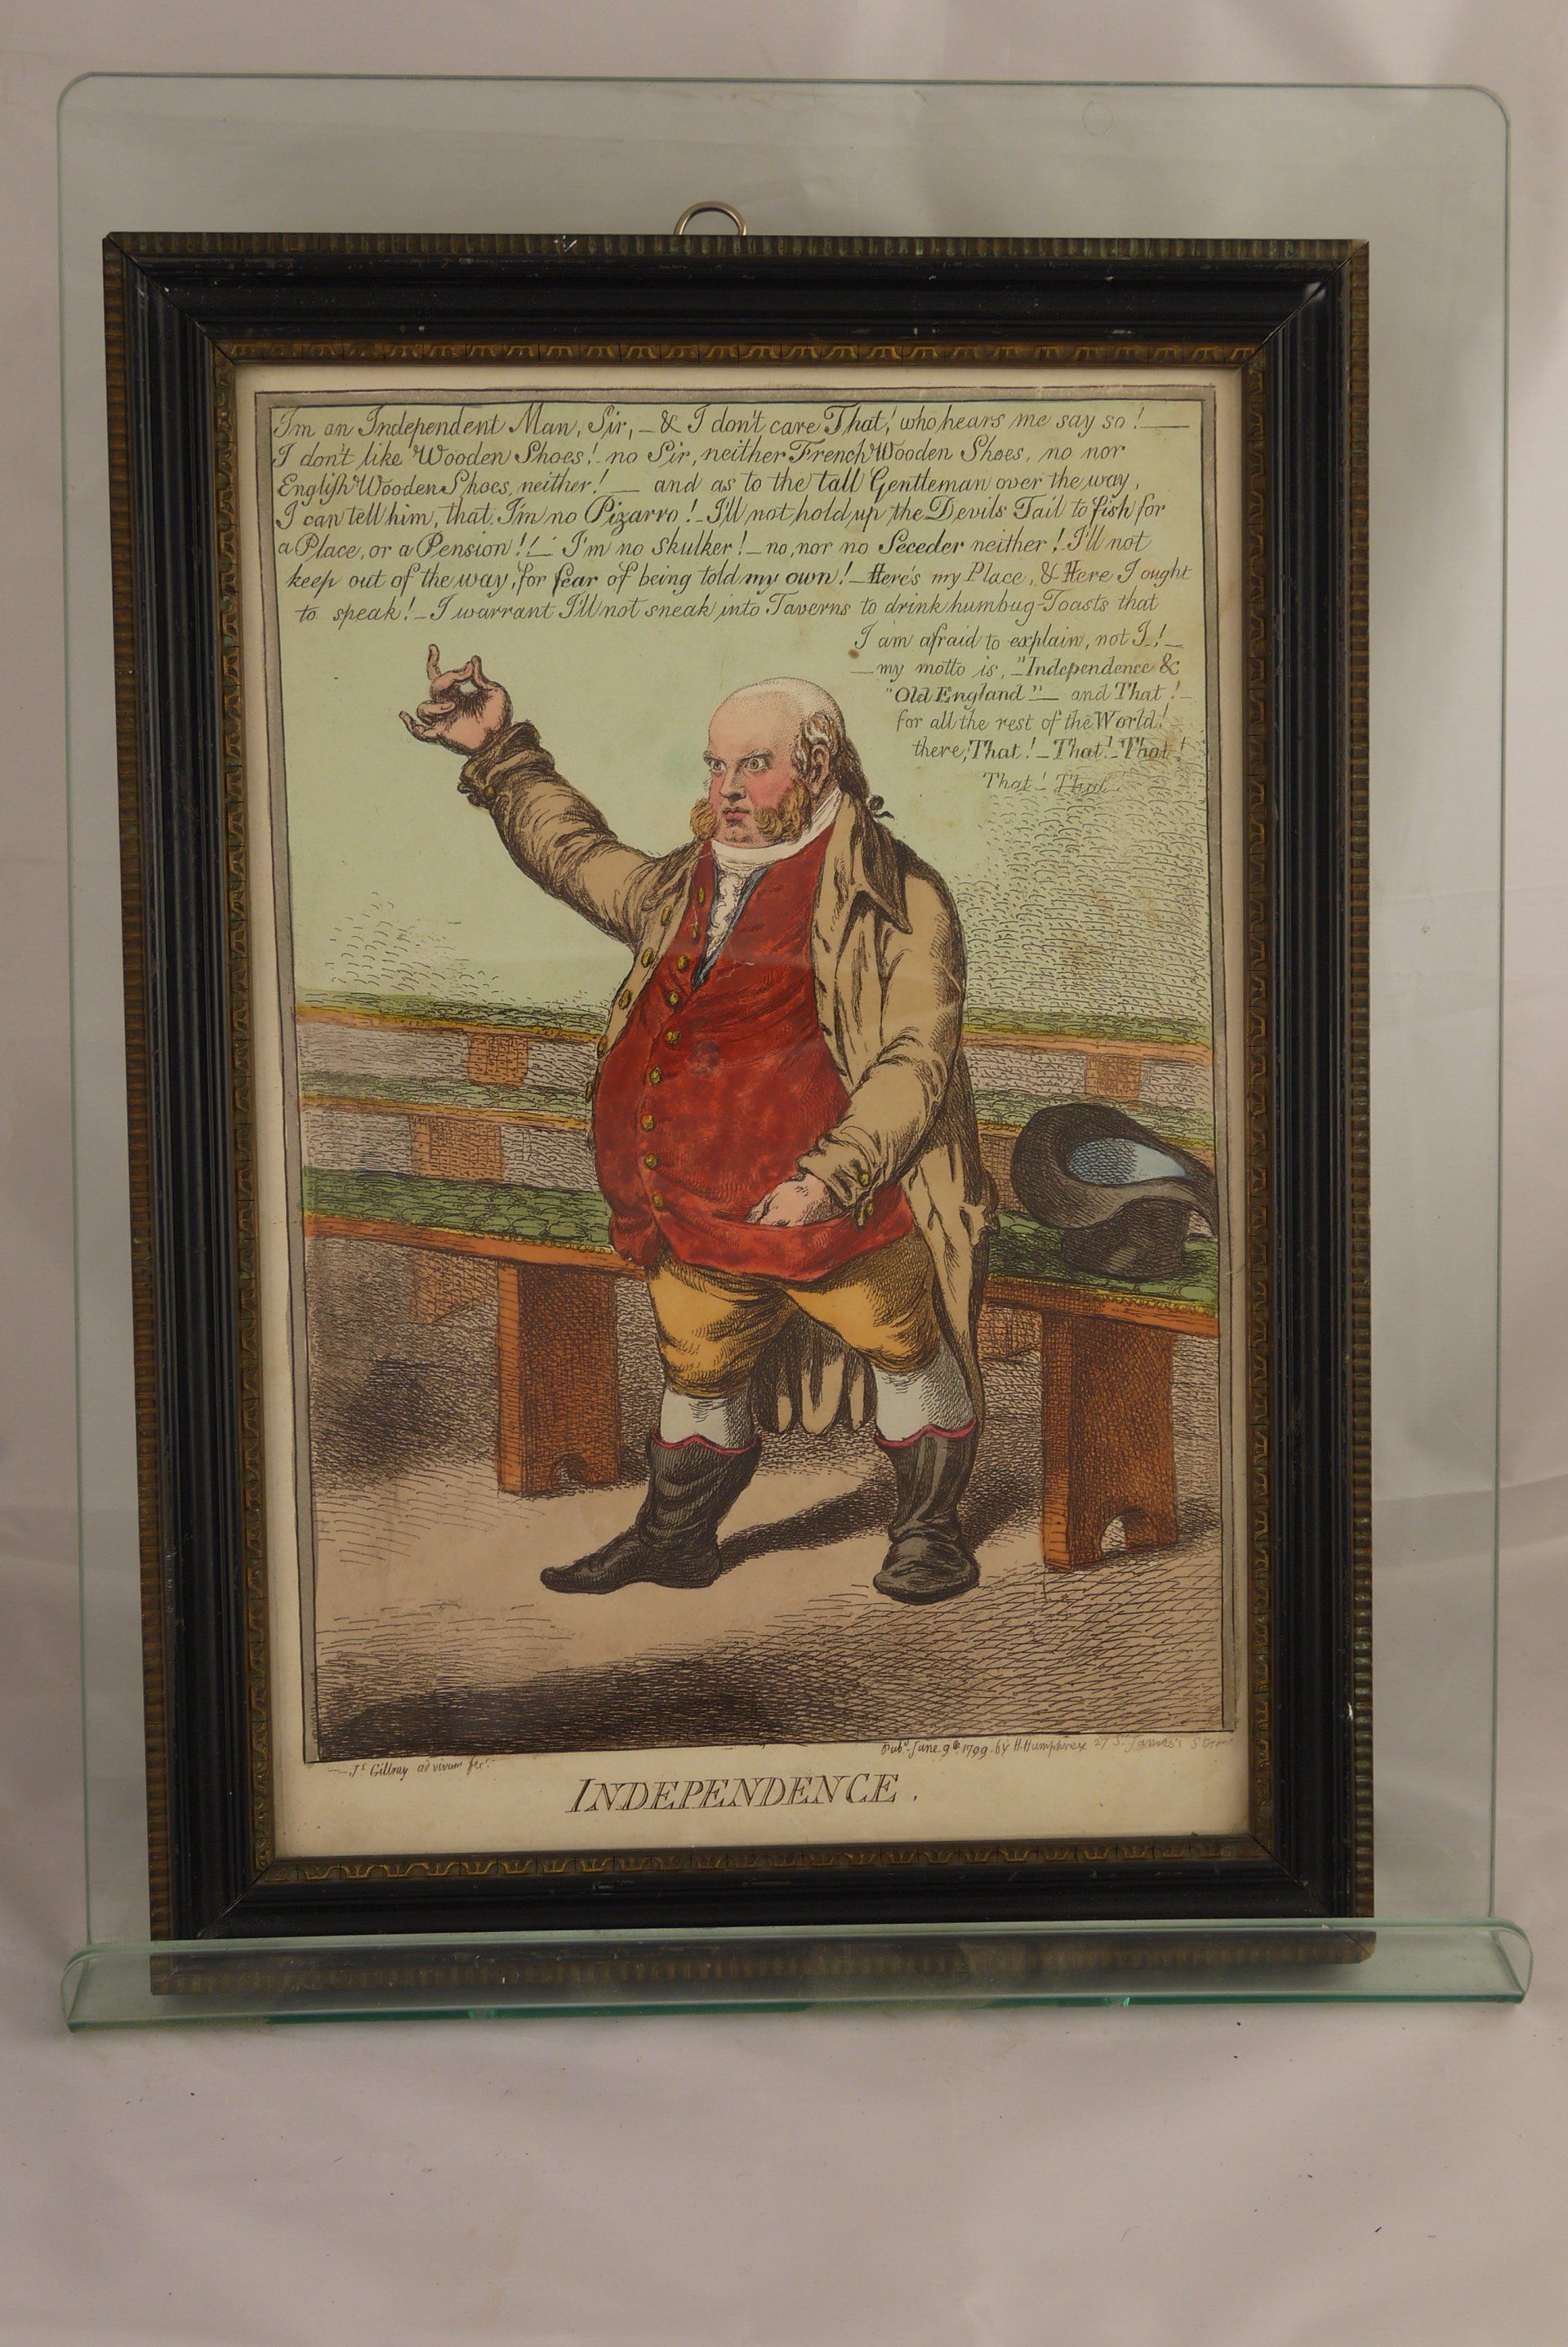 I'm an Independent Man, Sir, – & I don't care That! who hears me say so! —
I don't like Wooden Shoes! no Sir, neither French Wooden Shoes, no nor
English Wooden Shoes, neither! — and as to the tall Gentleman over the way,
I can tell him, that I'm no Pizarro! – I'll not hold up the Devils Tail to fish for
a Place, or a Pension!! – I'm no skulker! – no, nor no Seceder neither! I'll not
keep out of the way, for fear of being told my own! – Here's my Place, & Here I ought
to speak! – I warrant I'll not sneak into Taverns to drink humbug-Toasts that
I am afraid to explain, not I! –
— my motto is, – "Independence &
"Old England" — and That! –
for all the rest of the World!
there, That! – That! – That!
That! That
Js. Gillray ad vivum fect.
Pubd. June 9th. 1799. by H. Humphrey 27 St. James's Street
INDEPENDENCE.